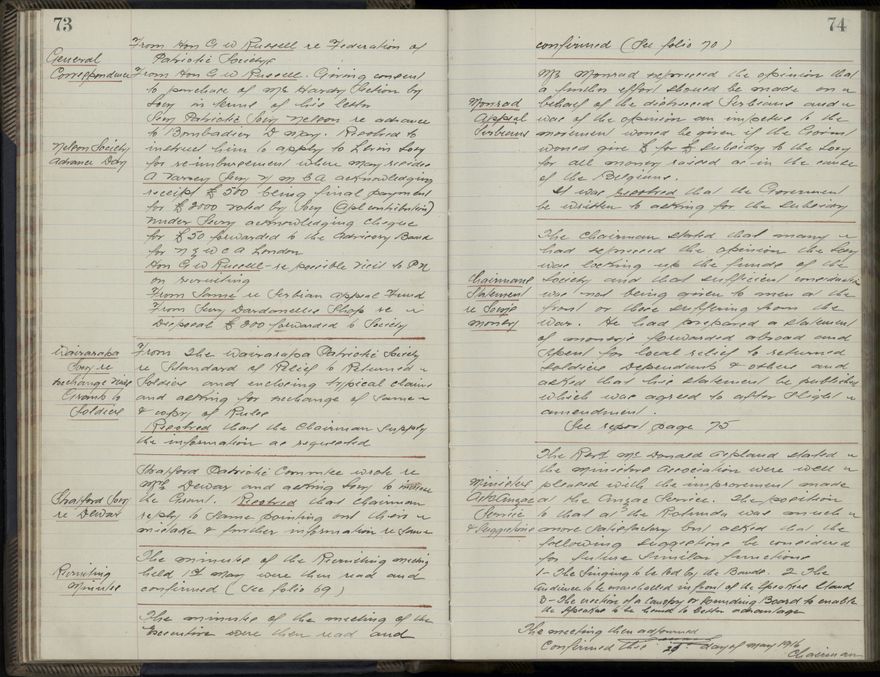 73
General
Correspondence
From Hon G W Russell re Federation of
Patriotic Societys
From Hon G W Russell. Giving consent
to purchase of Mr Hardy Section by
Socy in terms of his letter
Nelson Society
advance Day
Secy Patriotic Socy Nelson re advance
to Bombadier D May. Resolved to
instruct him to apply to Levin Socy
for re-imbursement where May resides
A Varney Secy Y M C A acknowledging
receipt £500 being final payment
for £2000 voted by Socy (Apl contribution)
Under Secy acknowledging cheque
for £50 forwarded to the Advisory Board
for N Z W C A London
Hon G W Russell - re possible visit to P N
on recruiting
From Same re Serbian appeal Fund
From Secy Dardanelles Shop re
Disposal £200 forwarded to Society
Wairarapa
Socy re
exchange
Grants to
Soldiers
From The Wairarapa Patriotic Society
re Standard of Relief to Returned
Soldiers and inclosing typical claims
and asking for exchange of Same
& copy of Rules
Resolved that the Chairman supply
the information as requested
Stratford Socy
re Dewar
Stratford Patriotic Commtee wrote re
Mrs Dewar and asking Socy to
the Grant. Resolved that Chairman
reply to Same pointing out their
mistake & further information re Same
Recruiting
Minutes
The minutes of the Recruiting meeting
held 1st May were then read and
confirmed (See folio 69)
The minutes of the meeting of the
Executive were then read and
74
confirmed (See folio 70)
Monrad
Appeal
Serbians
Mr Monrad expressed the opinion that
a further effort should be made on
behalf of the distressed Serbians and
was of the opinion an impetus to the
movement would be given if the Govmt
would give £ for £ subsidy to the Socy
for all money raised as in the cause
of the Belgians.
It was resolved that the Government
be written to asking for the subsidy
Chairmans
Statement
re Socys
money
The Chairman stated that many
had expressed the opinion the Socy
was locking up the funds of the
Society and that sufficient consideration
was not being given to men at the
front or those suffering from the
war. He had prepared a statement
of money's forwarded abroad and
spent for local relief to returned
soldiers dependents & others and
asked that his statement be published
which was agreed to after slight
amendment.
See report page 75
Ministers
Assn Anzac
Service
& Suggestions
The Revd Mr Donald Aspland stated
the Ministers Association were well
pleased with the improvement made
at the Anzac Service. The position
to that at the Rotunda was much
more satisfactory but asked that the
following suggestions be considered
for future similar functions
1 - The Singing to be led by the Bands. 2 The
Audience to be marshalled in front of the Speakers Stand
3 - The erection of a Canopy or Sounding Board to enable
the Speakers to be heard to better advantage
The meeting then adjourned
Confirmed this day of May 1916
Chairman